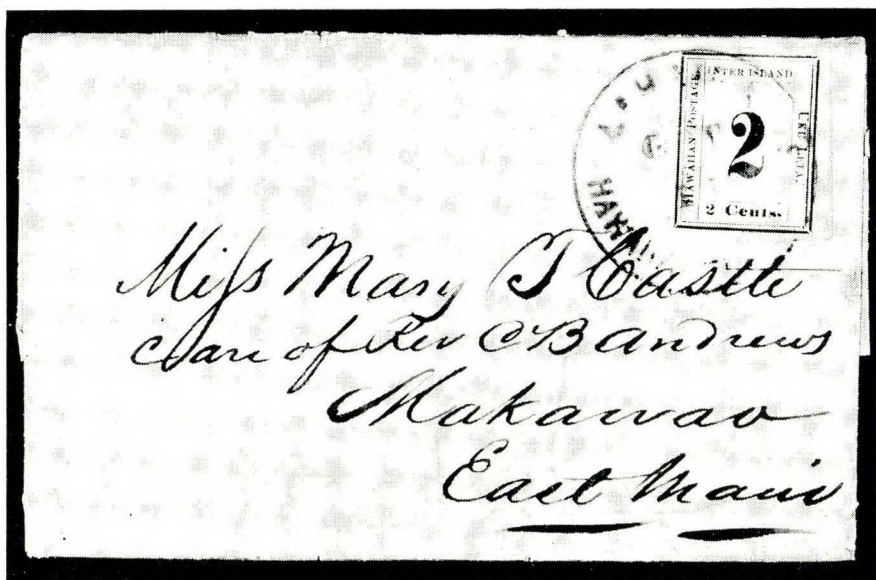 INTER ISLAND
HAWAIIAN POSTAGE
UKU LETA.
2
2 Cents.
HAWAII
Miss Mary J Castle
Care of Rev C B Andrews
Makawao
East Maui